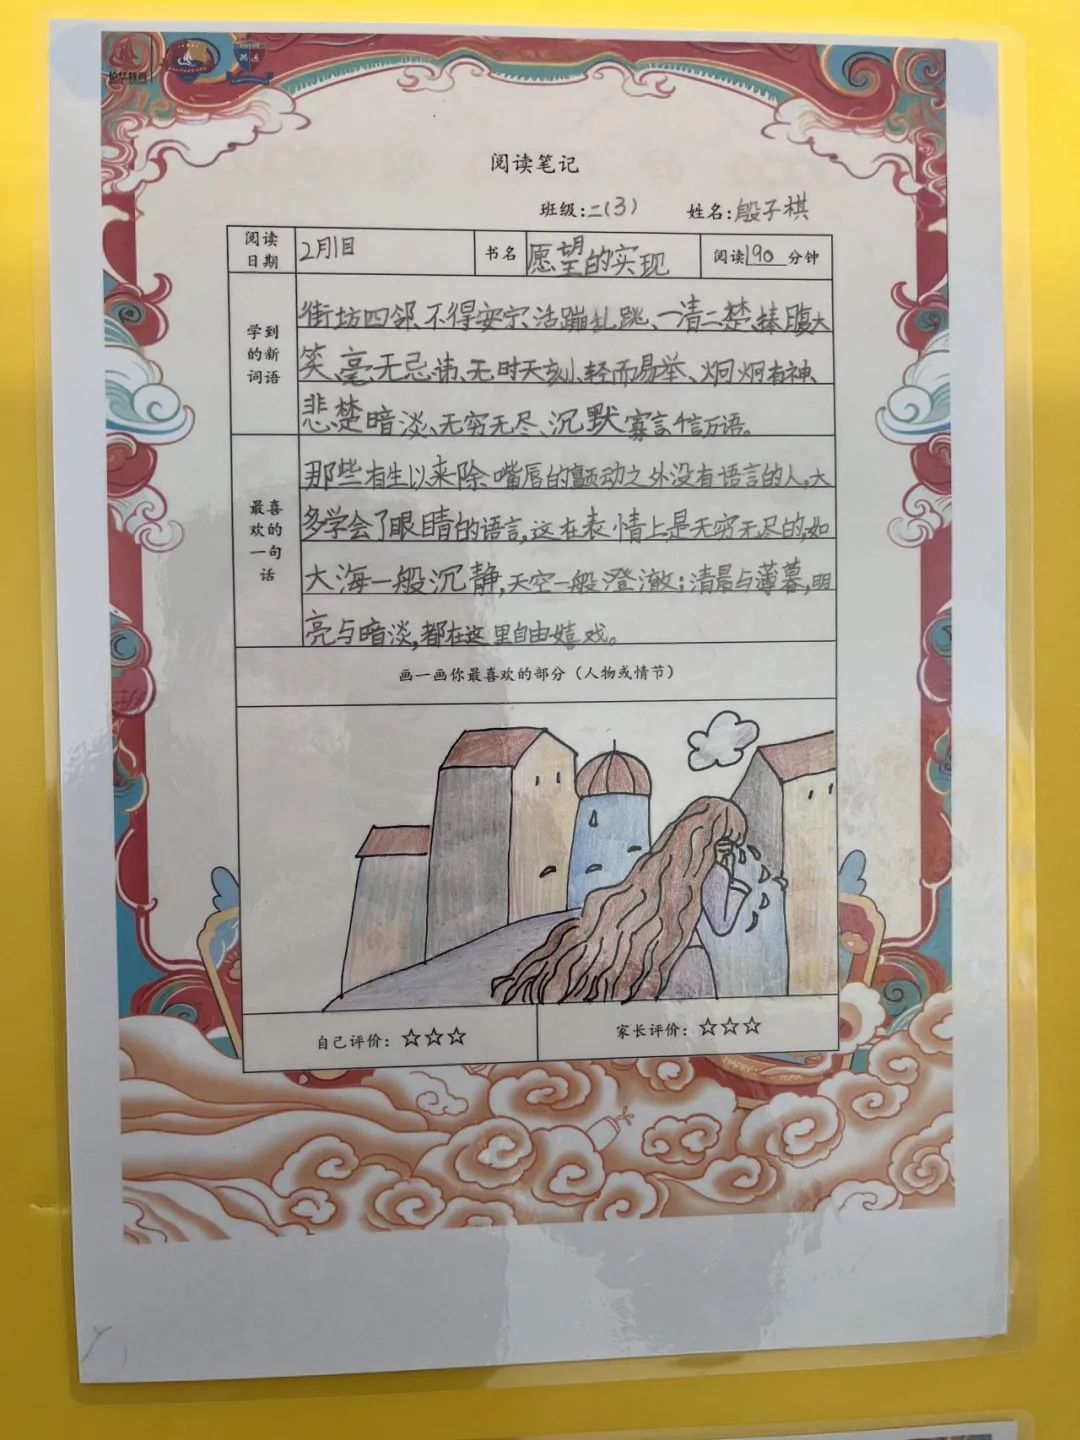 阅读笔记
班级:二(3) 姓名:殷子棋
阅读日期 2月1日 书名 愿望的实现 阅读190分钟
学到的新词语
街坊四邻、不得安宁、活蹦乱跳、一清二楚、捧腹大
笑、毫无忌讳、无时无刻、轻而易举、炯炯有神、
悲楚暗淡、无穷无尽、沉默寡言、千言万语。
最喜欢的一句话
那些有生以来除嘴唇的颤动之外没有语言的人,大
多学会了眼睛的语言,这在表情上是无穷无尽的,如
大海一般沉静,天空一般澄澈;清晨与薄暮,明
亮与暗淡,都在这里自由嬉戏。
画一画你最喜欢的部分(人物或情节)
自己评价:☆☆☆ 家长评价:☆☆☆